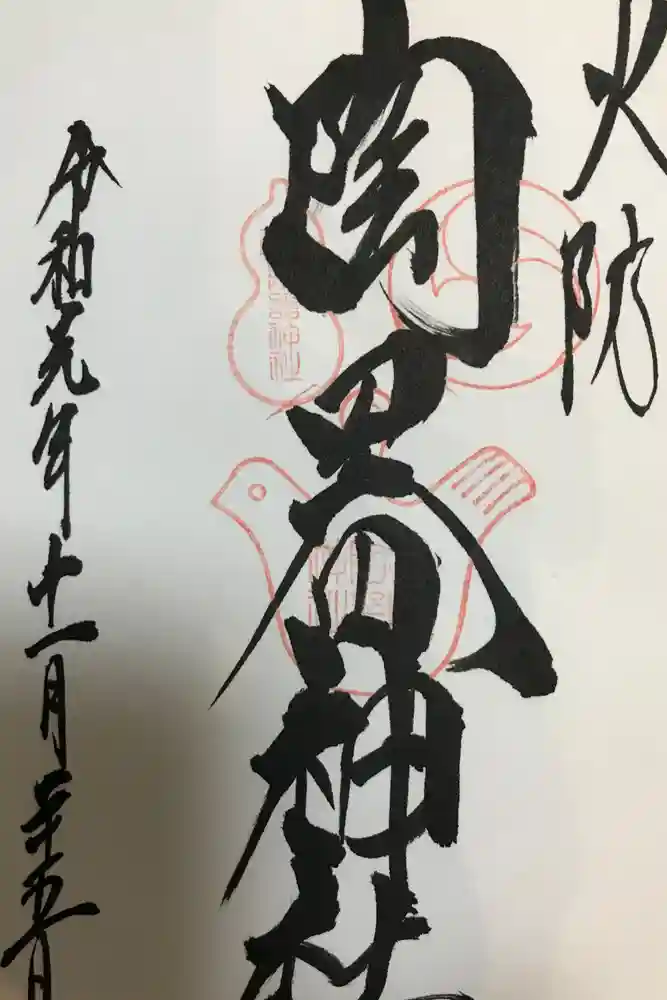 火防
陶器神社
令和元年十一月二十五日
陶器神社